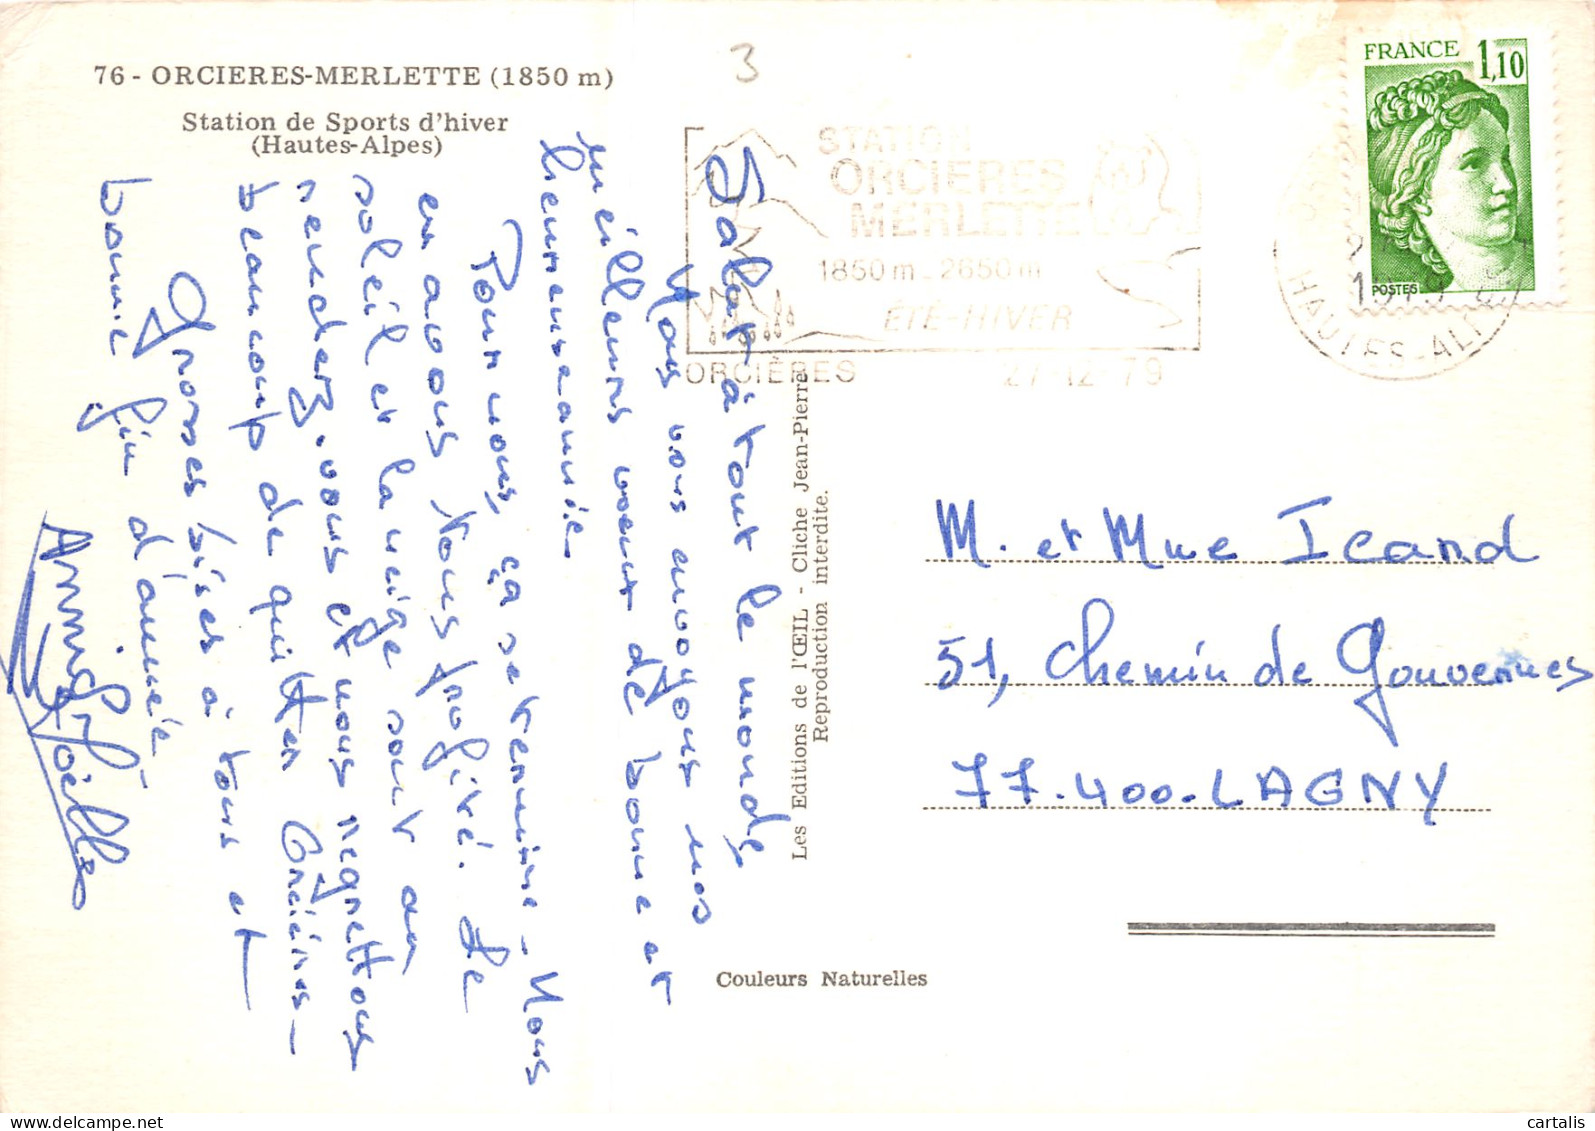 76 - ORCIERES-MERLETTE (1850 m)
Station de Sports d'hiver
(Hautes-Alpes)
3
Salut à tout le monde
Nous vous envoyons nos
meilleurs voeux de bonne et
heureuse année
Pour nous, ça se termine - Nous
en avons tous profité. Le
soleil et la neige sont au
rendez-vous et nous regrettons
beaucoup de quitter Orcières -
Grosses bises à tous et
bonne fin d'année -
Annie Joëlle
Les Editions de l'ŒIL - Cliche Jean-Pierre
Reproduction interdite.
STATION
ORCIERES
MERLETTE
1850 m - 2650 m
ÉTÉ-HIVER
ORCIÈRES 27-12-79
FRANCE 1,10
POSTES
HAUTES-ALPES
M. et Mme Icard
51, Chemin de Gouvernes
77.400.LAGNY
Couleurs Naturelles
cartalis
delcampe.net